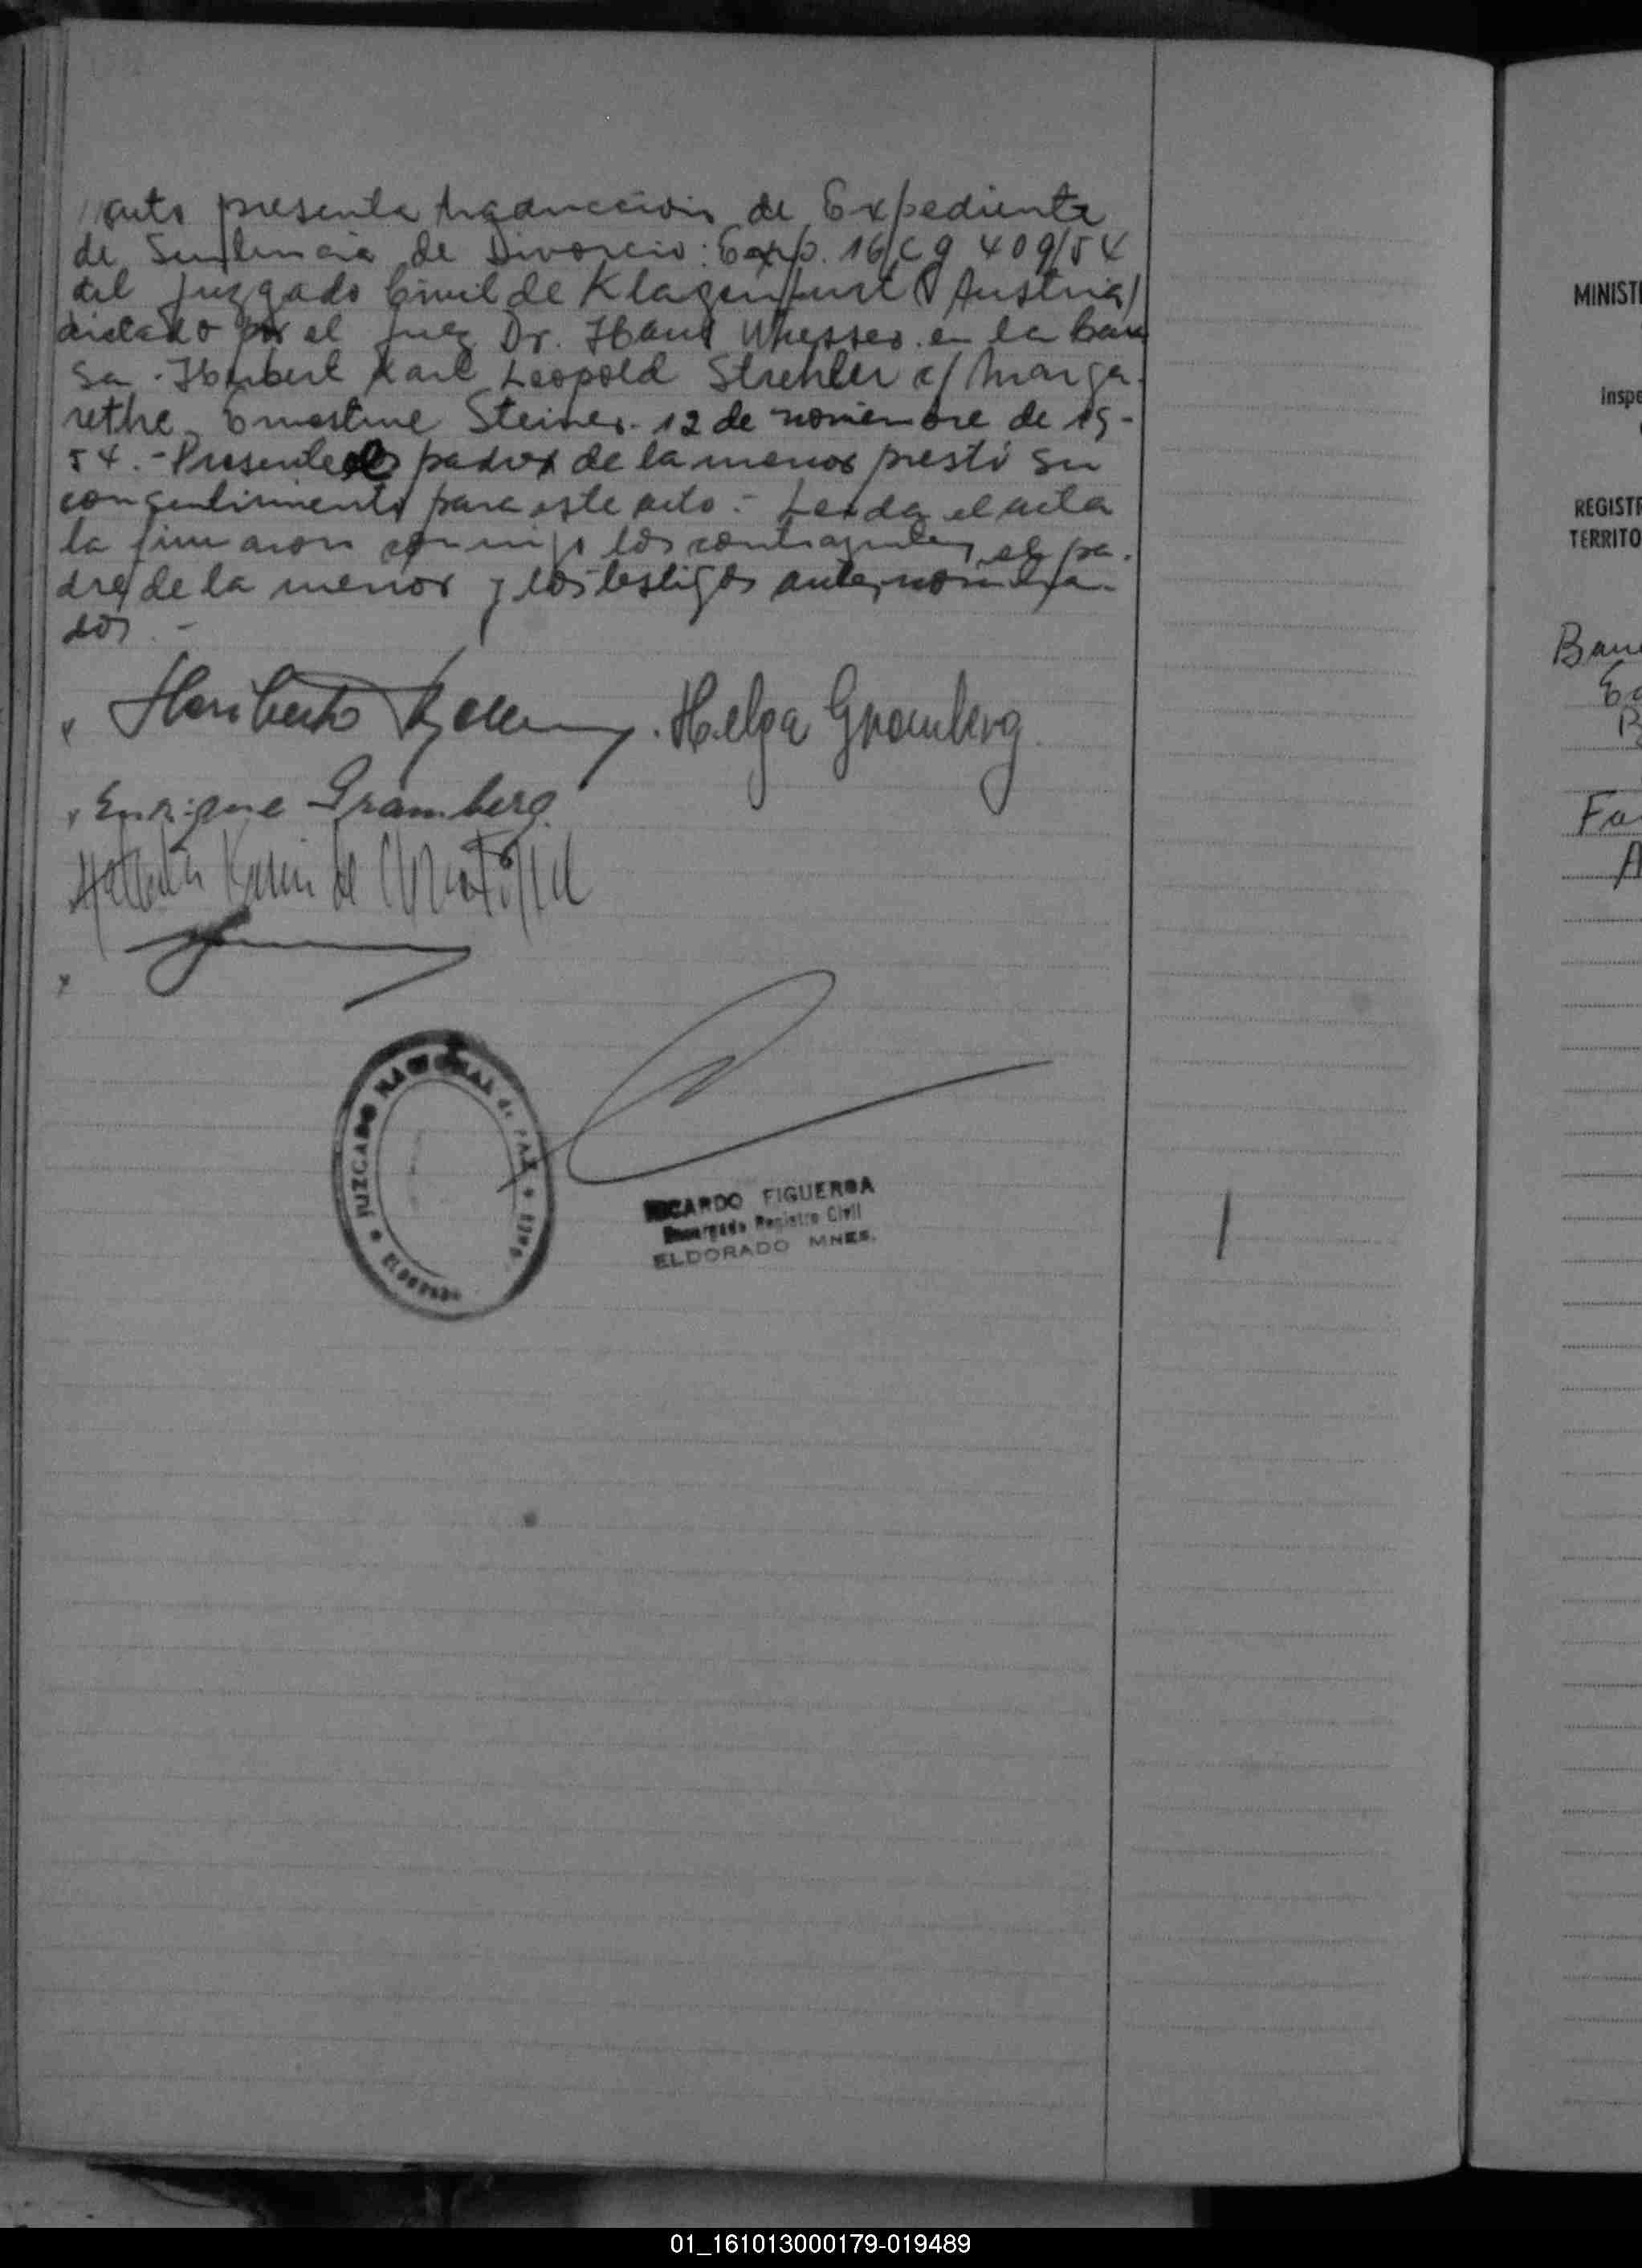 auto presenta traducción de Expediente
de Sentencia de Divorcio: Exp. 16/Cg 409/54
del Juzgado Civil de Klagenfurt (Austria)
dictado por el Juez Dr. Hans en la Cau
sa. Herbert Karl Leopold Strehler c/ Marga-
rethe Ernestine Steiner. 12 de noviembre de 19-
54.- Presente el padre de la menor prestó su
consentimiento para este acto.- Leída el acta
la firmaron conmigo los contrayentes, el pa-
dre de la menor y los testigos antes nombra-
dos.-
Heriberto Helga Gramberg
Enrique Gramberg
de
JUZGADO NACIONAL de PAZ
ELDORADO
RICARDO FIGUEROA
Encargado Registro Civil
ELDORADO MNES.
MINIST
Inspe
REGIST
TERRITO
Bau
Fa
A
01_161013000179-019489